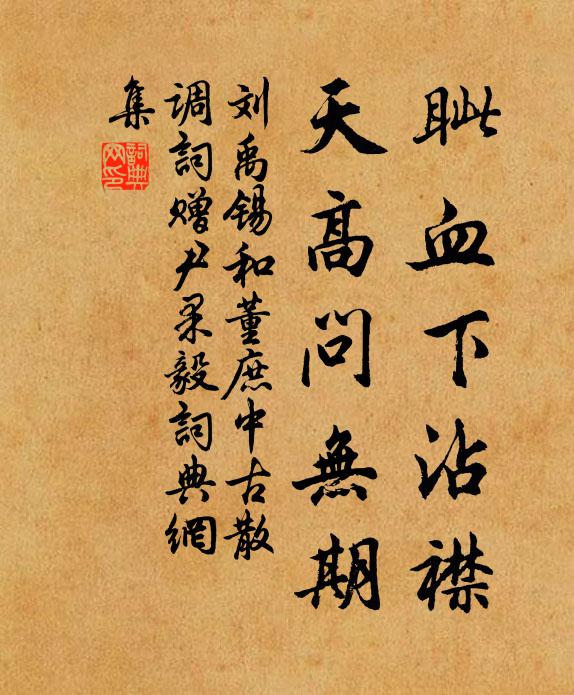 眦血下沾襟
天高问無期
刘禹锡和董庶中古散
调詞赠尹果毅詞典網
集
詞典網印